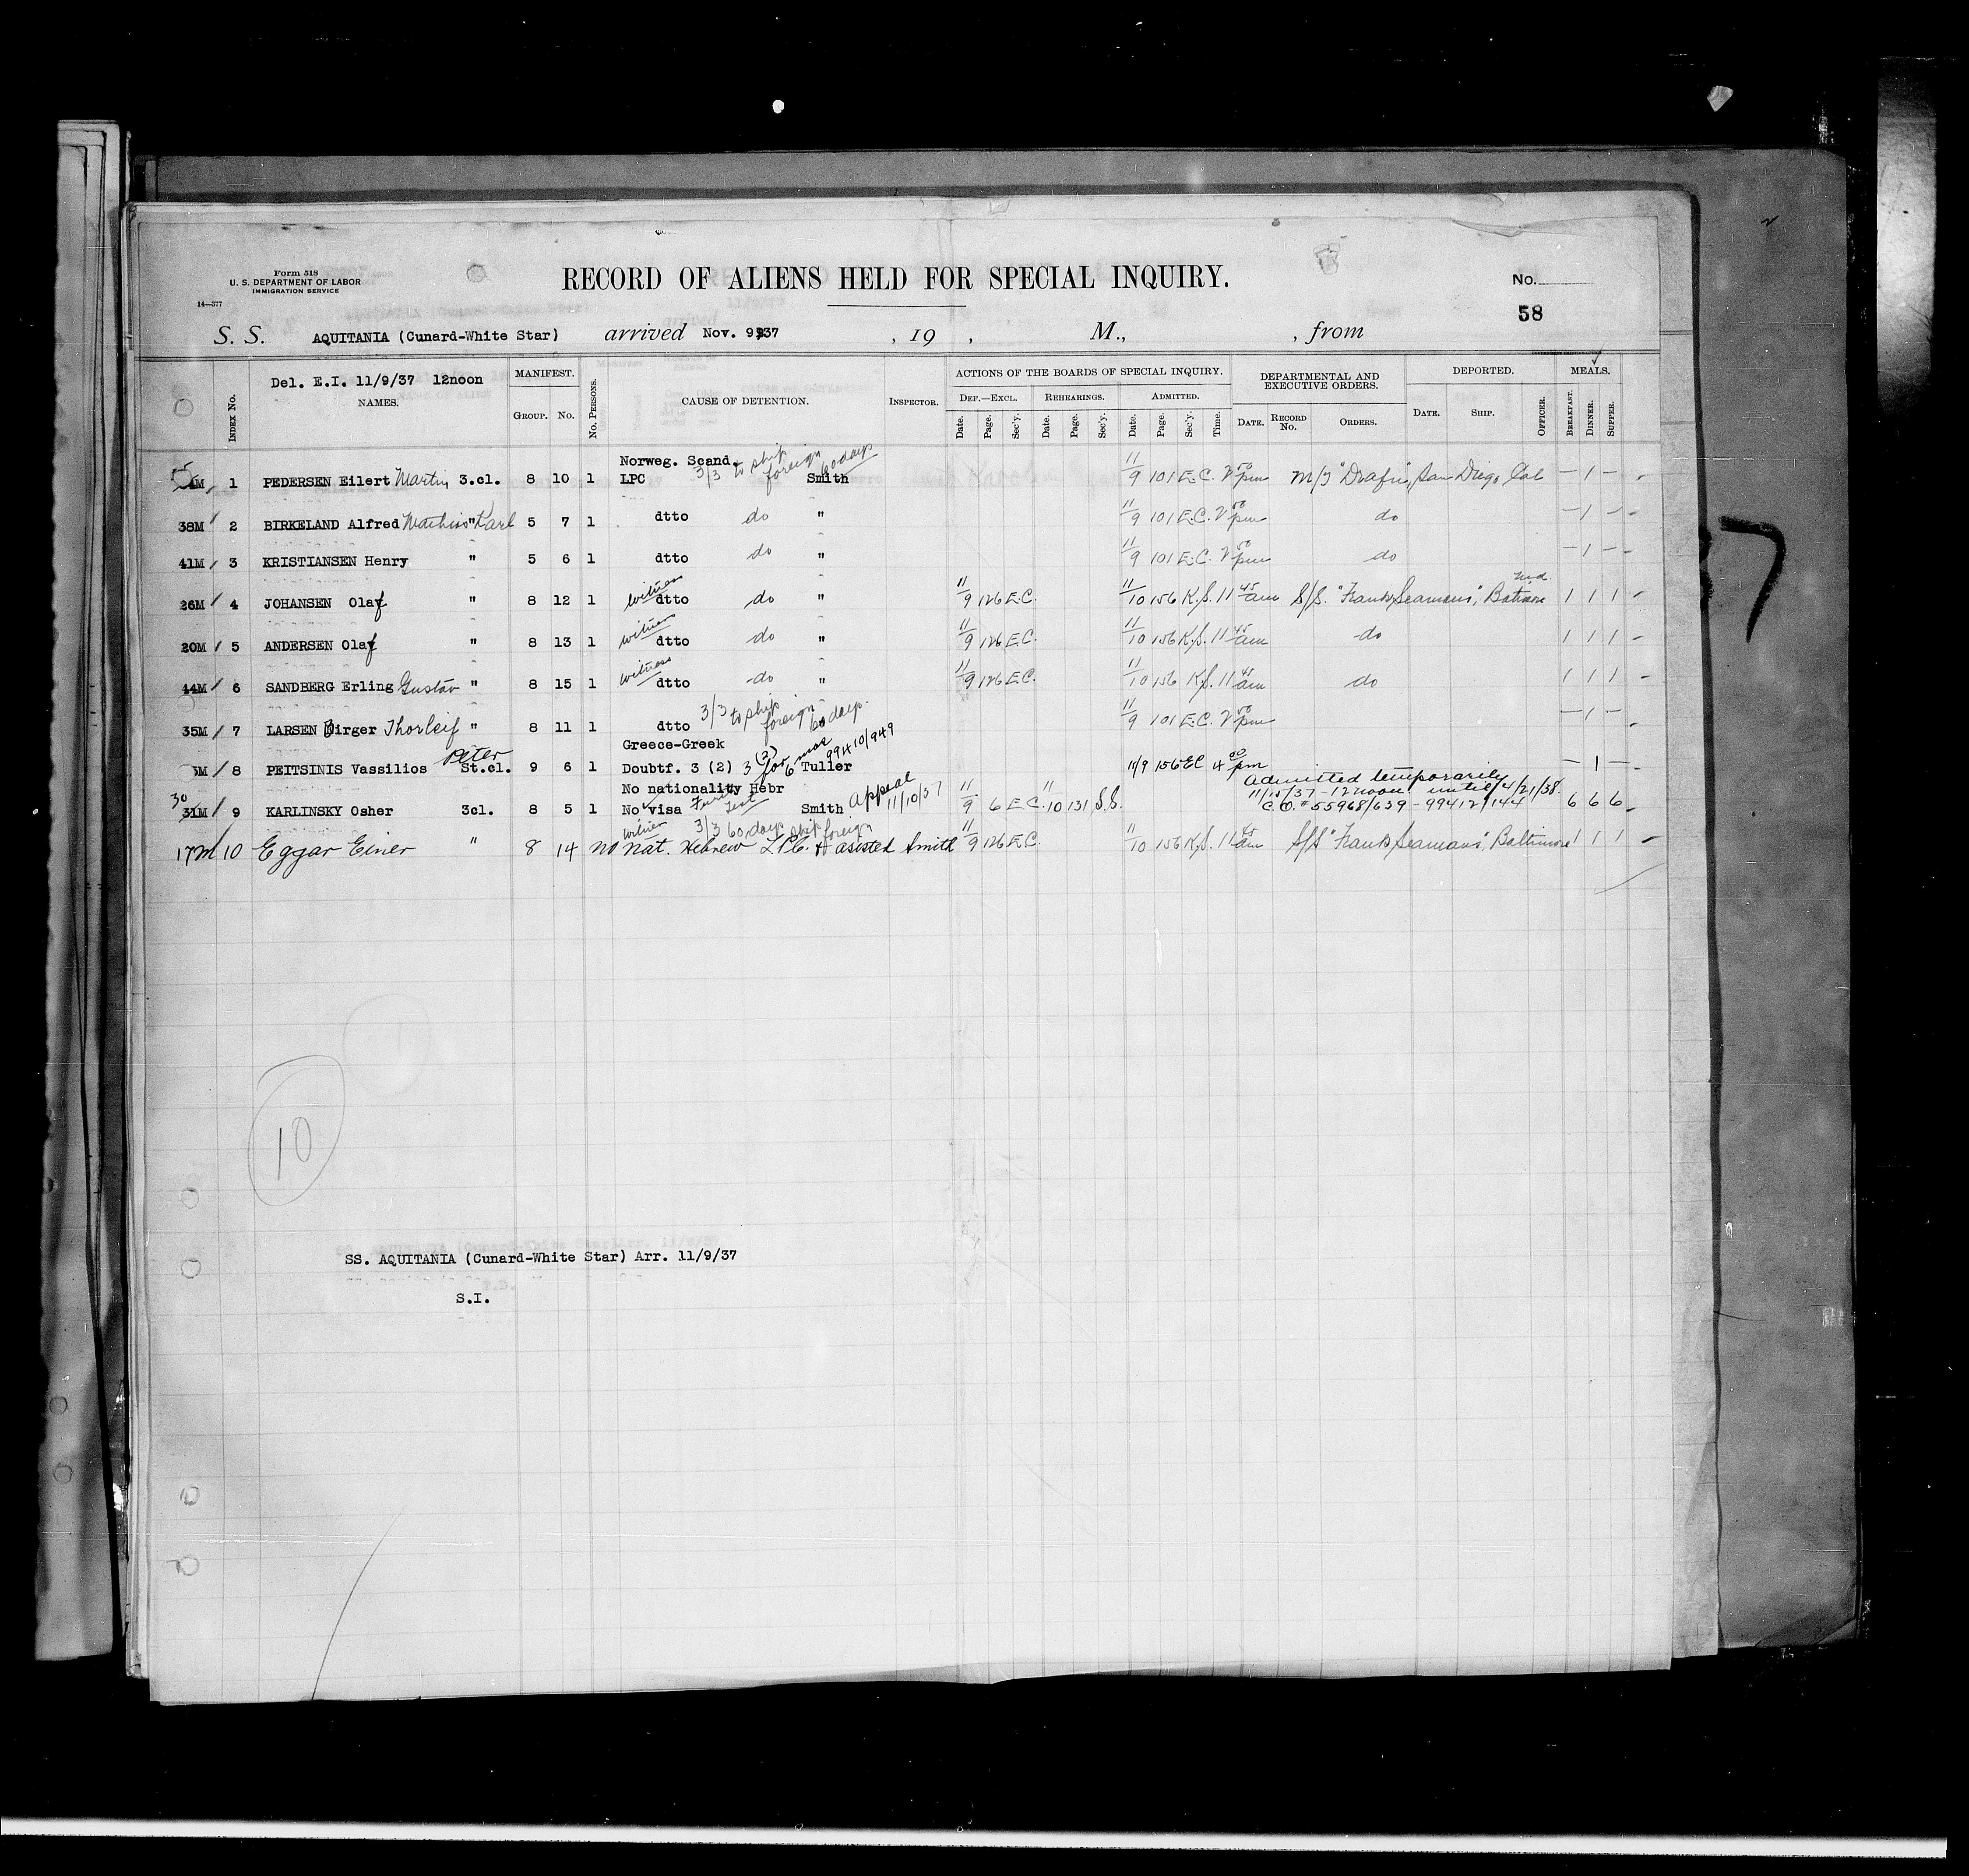 Form 518
U. S. DEPARTMENT OF LABOR
IMMIGRATION SERVICE
14—377
RECORD OF ALIENS HELD FOR SPECIAL INQUIRY.
No.
58
S. S. AQUITANIA (Cunard-White Star) arrived Nov. 9 37 , 19 , M., , from
Del. E.I. 11/9/37 12noon
MANIFEST. ACTIONS OF THE BOARDS OF SPECIAL INQUIRY. DEPARTMENTAL AND EXECUTIVE ORDERS. DEPORTED. MEALS.
INDEX No. NAMES. GROUP. No. No. PERSONS. CAUSE OF DETENTION. INSPECTOR. DEF.—EXCL. REHEARINGS. ADMITTED. DATE. RECORD No. ORDERS. DATE. SHIP. OFFICER. BREAKFAST. DINNER. SUPPER.
Date. Page. Sec'y. Date. Page. Sec'y. Date. Page. Sec'y. Time.
Norweg. Scand. 3/3 to ship foreign 60 days
1 PEDERSEN Eilert Martin 3.cl. 8 10 1 LPC Smith 11/9 101 E.C. 2 50 pm San Diego Cal — 1 —
38M 2 BIRKELAND Alfred Karl " 5 7 1 dtto do " 11/9 101 E.C. 2 50 pm do — 1 —
41M 3 KRISTIANSEN Henry " 5 6 1 dtto do " 11/9 101 E.C. 2 50 pm do — 1 —
26M 4 JOHANSEN Olaf " 8 12 1 witness dtto do " 11/9 126 E.C. 11/10 156 K.S. 11 45 am S/S. "Frank Seamans", Md. 1 1 1
20M 5 ANDERSEN Olaf " 8 13 1 witness dtto do " 11/9 126 E.C. 11/10 156 K.S. 11 45 am do 1 1 1
44M 6 SANDBERG Erling Gustav " 8 15 1 witness dtto do " 11/9 126 E.C. 11/10 156 K.S. 11 45 am do 1 1 1
35M 7 LARSEN Birger Thorleif " 8 11 1 dtto 3/3 to ship foreign 60 days " 11/9 101 E.C. 2 50 pm — 1 —
Greece-Greek
8 PEITSINIS Vassilios Peter St.cl. 9 6 1 Doubtf. 3 (2) 3 (3) for 6 mos Tuller 99410/949 11/9 156 EC 4 00 pm — 1 —
No nationality Hebr
30 31M 9 KARLINSKY Osher 3cl. 8 5 1 No visa Smith Appeal 11/10/37 11/9 6 E C. 11/10 131 S.S. Admitted temporarily 11/15/37 - 12 noon until 4/21/38. C.O. # 55968/639 - 99412/144 6 6 6
witness 3/3 60 days ship foreign
17M 10 Eggar Einer " 8 14 no nat. Hebrew LPC. & assisted Smith 11/9 126 E.C. 11/10 156 K.S. 11 45 am S/S "Frank Seamans", Baltimore 1 1 1
10
SS. AQUITANIA (Cunard-White Star) Arr. 11/9/37
S.I.